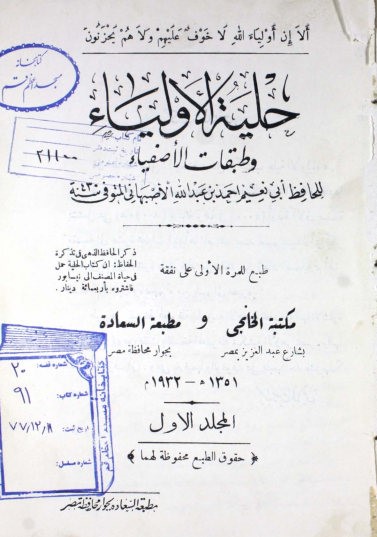 أَلاَ إِن أَوْلِيَاءَ اللهِ لَا خَوْفٌ عَلَيْهِمْ وَلاَ هُمْ يَحْزَنُونَ
كتابخانه
مسجد اعظم قم
حلية الأولياء
وطبقات الأصفياء
٢١١٠٠
للحافظ أبي نعيم أحمد بن عبد الله الأصبهاني المتوفى سنة ٤٣٠
ذكر الحافظ الذهبي في تذكرة
الحفاظ: ان كتاب الحلية حمل
في حياة المصنف الى نيسابور
فاشتروه بأربعمائة دينار.
طبع للمرة الأولى على نفقة
مكتبة الخانجي و مطبعة السعادة
بشارع عبد العزيز بمصر بجوار محافظة مصر
١٣٥١ هـ – ١٩٣٢ م
المجلد الأول
﴿ حقوق الطبع محفوظة لهما ﴾
شماره قفسه: ٢٠
شماره كتاب: ٩١
تاريخ ثبت: ٧٧/١٢/
شماره مسلسل:
كتابخانه مسجد اعظم قم
مطبعة السعادة بجوار محافظة مصر